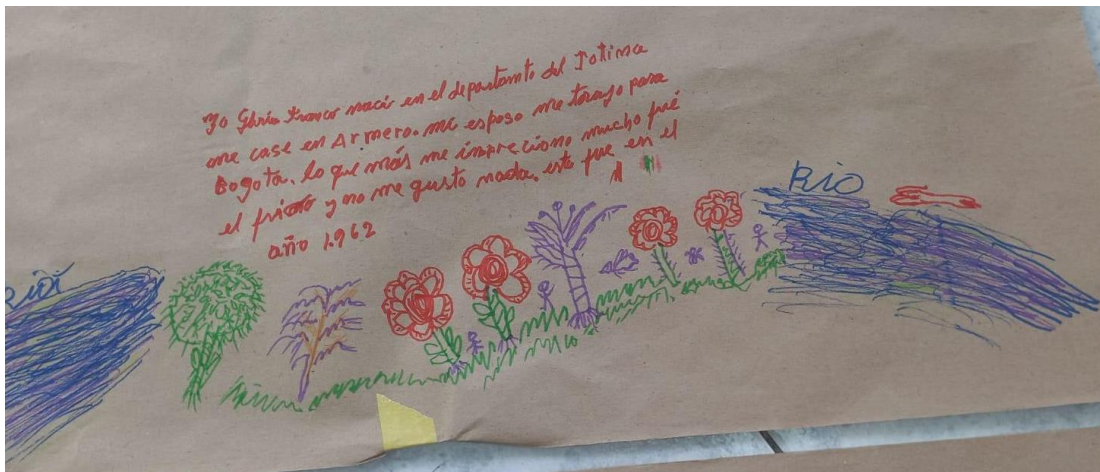 Yo Gloria Franco nací en el departamto del Totima
me case en Armero. mi esposo me torajo para
Bogota. lo que más me impreciono mucho fué
el frio y no me gusto nada. esto fue en el
año 1.962
RIO